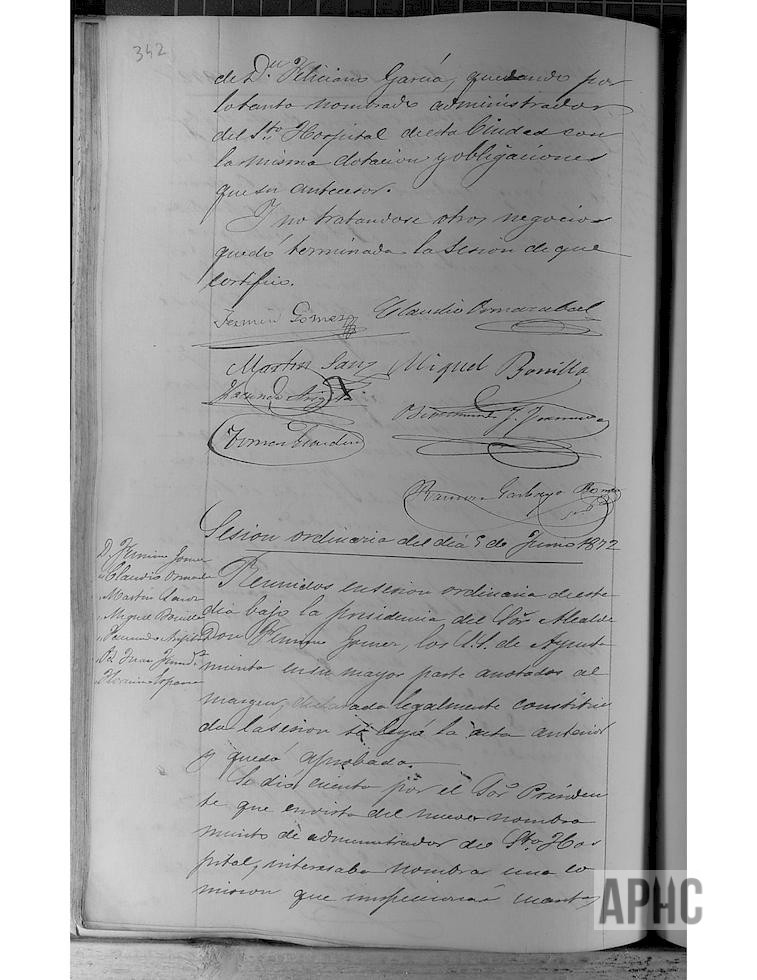 342
de D.n Feliciano García, quedando por
lotanto nombrado administrador
del Sto. Hospital de esta Ciudad con
la misma dotacion y obligaciones
que su antecesor.
Y no tratandose otros negocios
quedó terminada la sesion de que
certifico.
Fermin Gomez Claudio Ormazabal
Martin Sanz Miguel Bonilla
Facundo
Fermin
Ramon Garbayo
Sesion ordinaria del dia 9 de Junio 1872
D. Fermin Gomez
" Claudio Ormaza
" Martin Sanz
" Miguel Bonilla
" Facundo
" Juan
Reunidos en sesion ordinaria de este
dia bajo la presidencia del Sor. Alcalde
Don Fermin Gomez, los U.S. de Ayunta
miento en su mayor parte anotados al
margen, declarada legalmente constitui
da la sesion se leyó la acta anterior
y quedó aprobada.
Se dió cuenta por el Sor. Presiden
te que en vista del nuevo nombra
miento de administrador de Sto. Hos
pital, interesaba nombrar una co
mision que inspeccionará cuantas
APHC